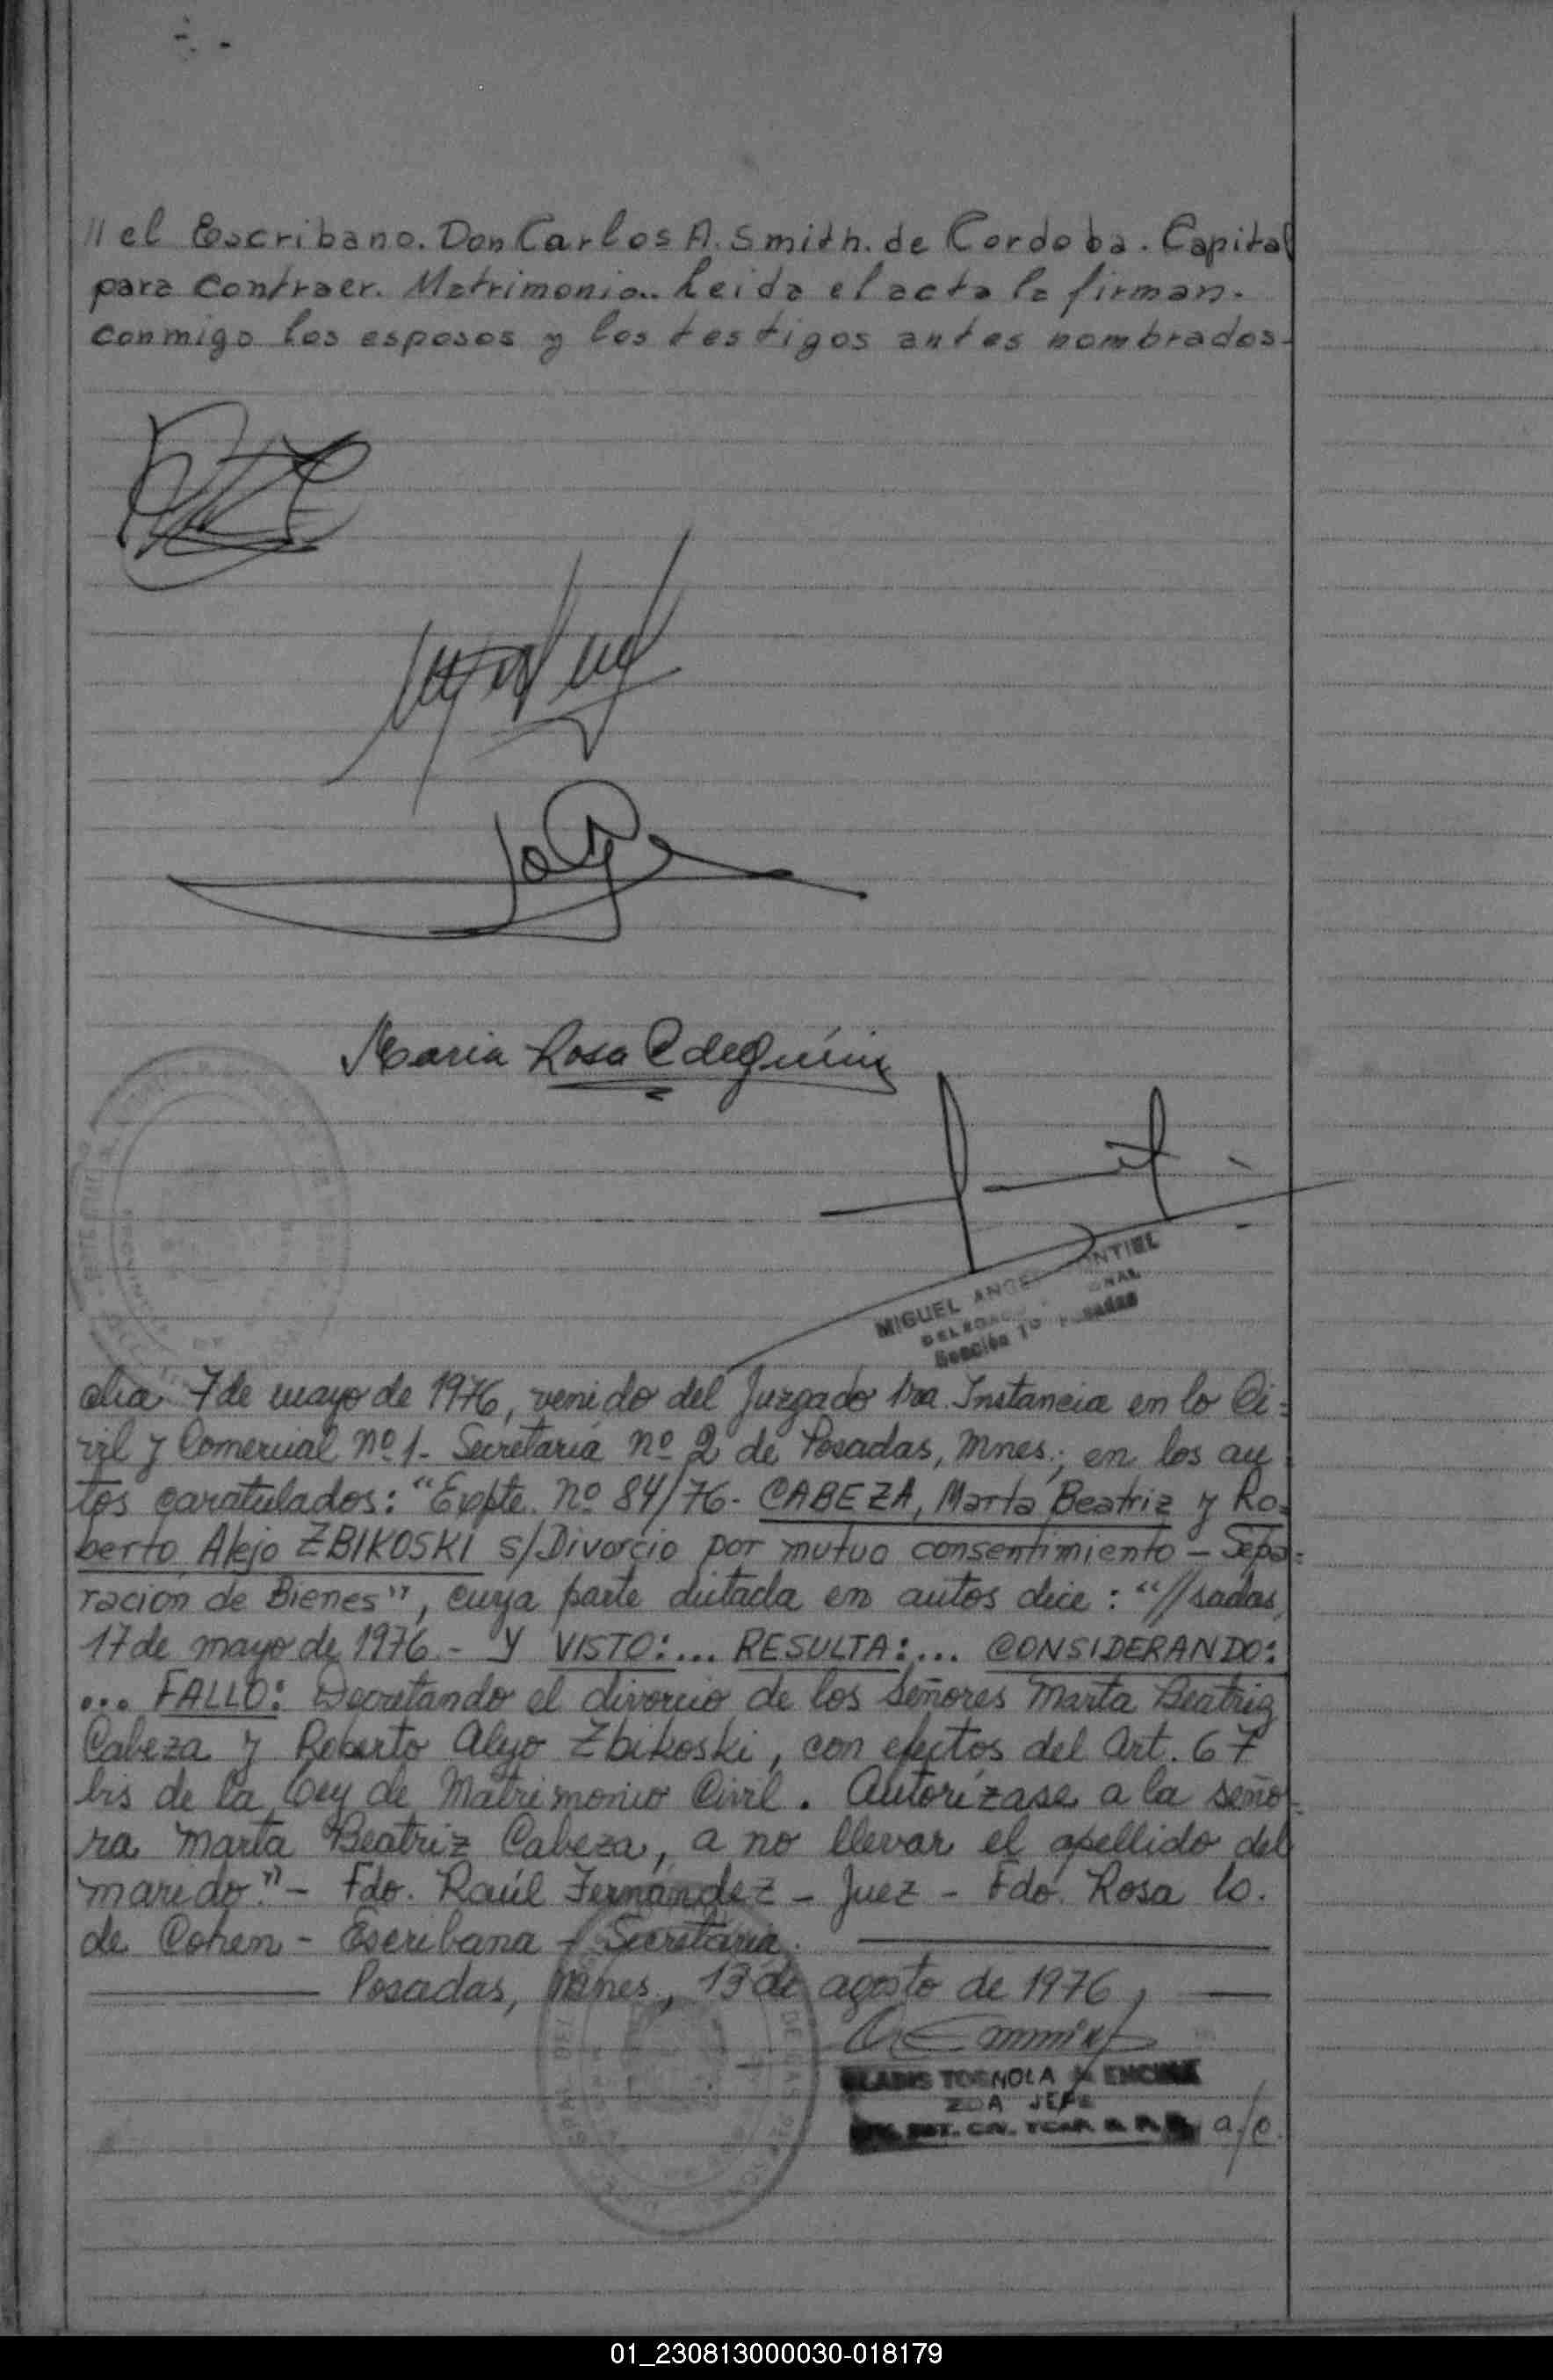 // el Escribano. Don Carlos A. Smith. de Cordoba. Capital
para Contraer. Matrimonio.. Leida el acta la firman.
conmigo los esposos y los testigos antes nombrados.
Maria Rosa C de
MIGUEL ANGEL
Sección 1º Posadas
día 7 de mayo de 1976, venido del Juzgado 1ra. Instancia en lo Ci=
vil y Comercial nº 1 - Secretaría nº 2 de Posadas, Mnes.; en los au
tos caratulados: "Expte. nº 84/76 - CABEZA, Marta Beatriz y Ro=
berto Alejo ZBIKOSKI s/Divorcio por mutuo consentimiento - Sepa=
ración de Bienes", cuya parte dictada en autos dice: "//sadas,
17 de mayo de 1976 - Y VISTO:... RESULTA:... CONSIDERANDO:
... FALLO: Decretando el divorcio de los Señores Marta Beatriz
Cabeza y Roberto Alejo Zbikoski, con efectos del Art. 67
bis de la Ley de Matrimonio Civil. Autorízase a la seño-
ra Marta Beatriz Cabeza, a no llevar el apellido del
marido." - Fdo. Raúl Fernández - Juez - Fdo. Rosa
de Cohen - Escribana - Secretaria.
Posadas, Mnes., 13 de agosto de 1976,
GLADIS TOGNOLA de ENCINA
2DA JEFE
a/c.
01_230813000030-018179